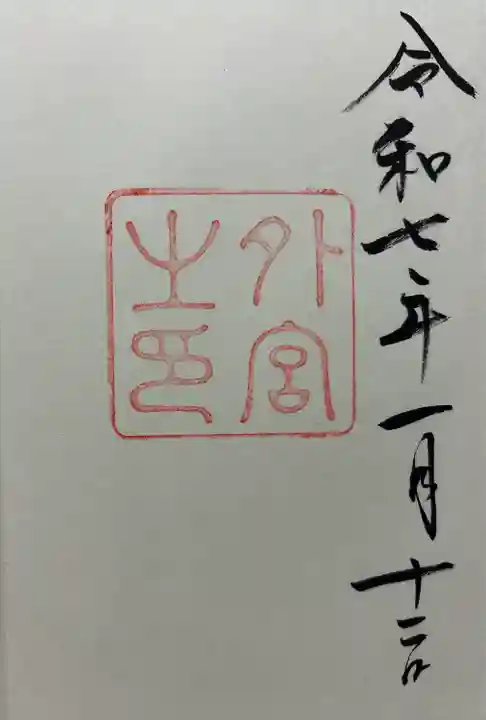 令和七年一月十二日
外宮
之印